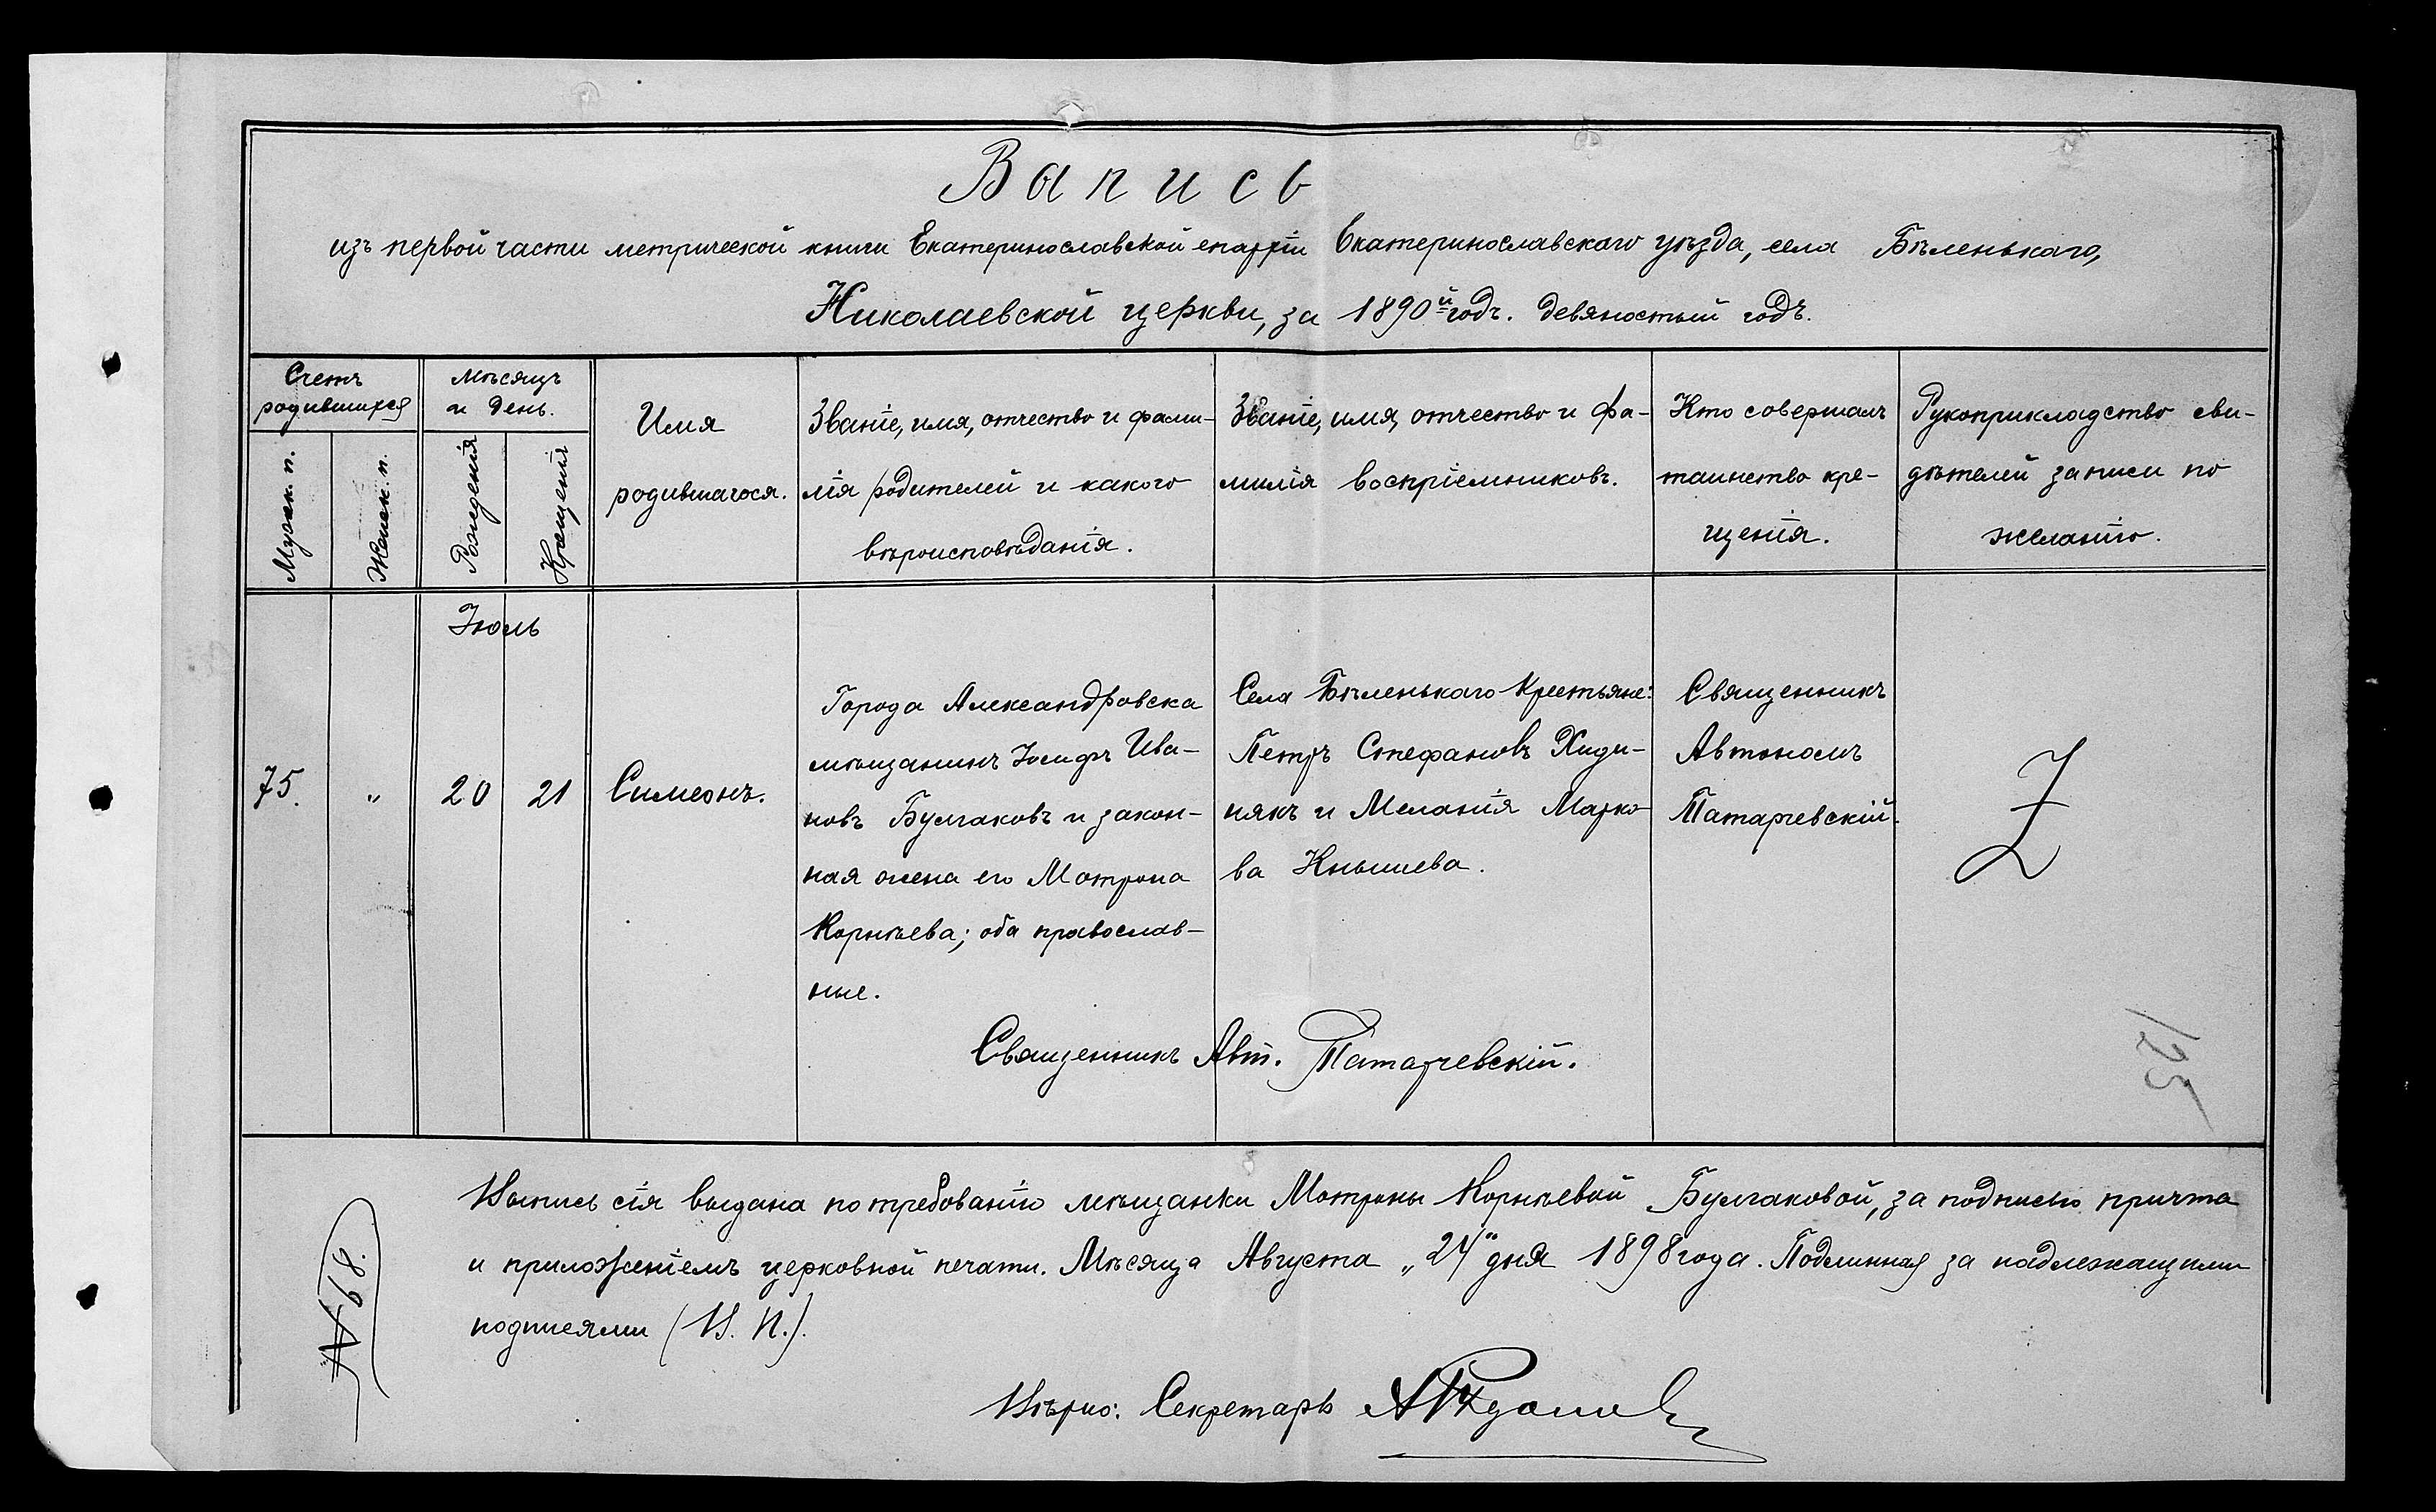 Запись
изъ первой части метрической книги Екатеринославской епархіи Екатеринославского уѣзда, села Бѣленькаго,
Николаевской церкви, за 1890й годъ. девяностый годъ.
Счетъ
родившихся
Мужск. п.
Женск. п.
Мѣсяцъ
и день.
Рожденія
Крещенія
Имя
родившагося.
Званіе, имя, отчество и фами-
лія родителей и какого
вѣроисповѣданія.
Званіе, имя, отчество и фа-
милія воспріемниковъ.
Кто совершалъ
таинство кре-
щенія.
Рукоприкладство сви-
дѣтелей записи по
желанію.
Іюль
75.
"
20
21
Симеонъ.
Города Александровска
мѣщанинъ Іосифъ Ива-
новъ Булгаковъ и закон-
ная жена его Мотрона
Корнѣева; оба православ-
ные.
Села Бѣленькаго крестьяне:
Петръ Стефановъ Хиди-
някъ и Меланія Марко
ва Кнышева.
Священникъ
Автономъ
Татарчевскій.
Священникъ Авт. Татарчевскій.
125
Выпись сія выдана по требованію мѣщанки Мотроны Корнѣевой Булгаковой, за подписью причта
и приложеніемъ церковной печати. Мѣсяца Августа „24" дня 1898 года. Подлинная за надлежащими
подписями (М. П.).
№ 68.
Вѣрно: Секретарь